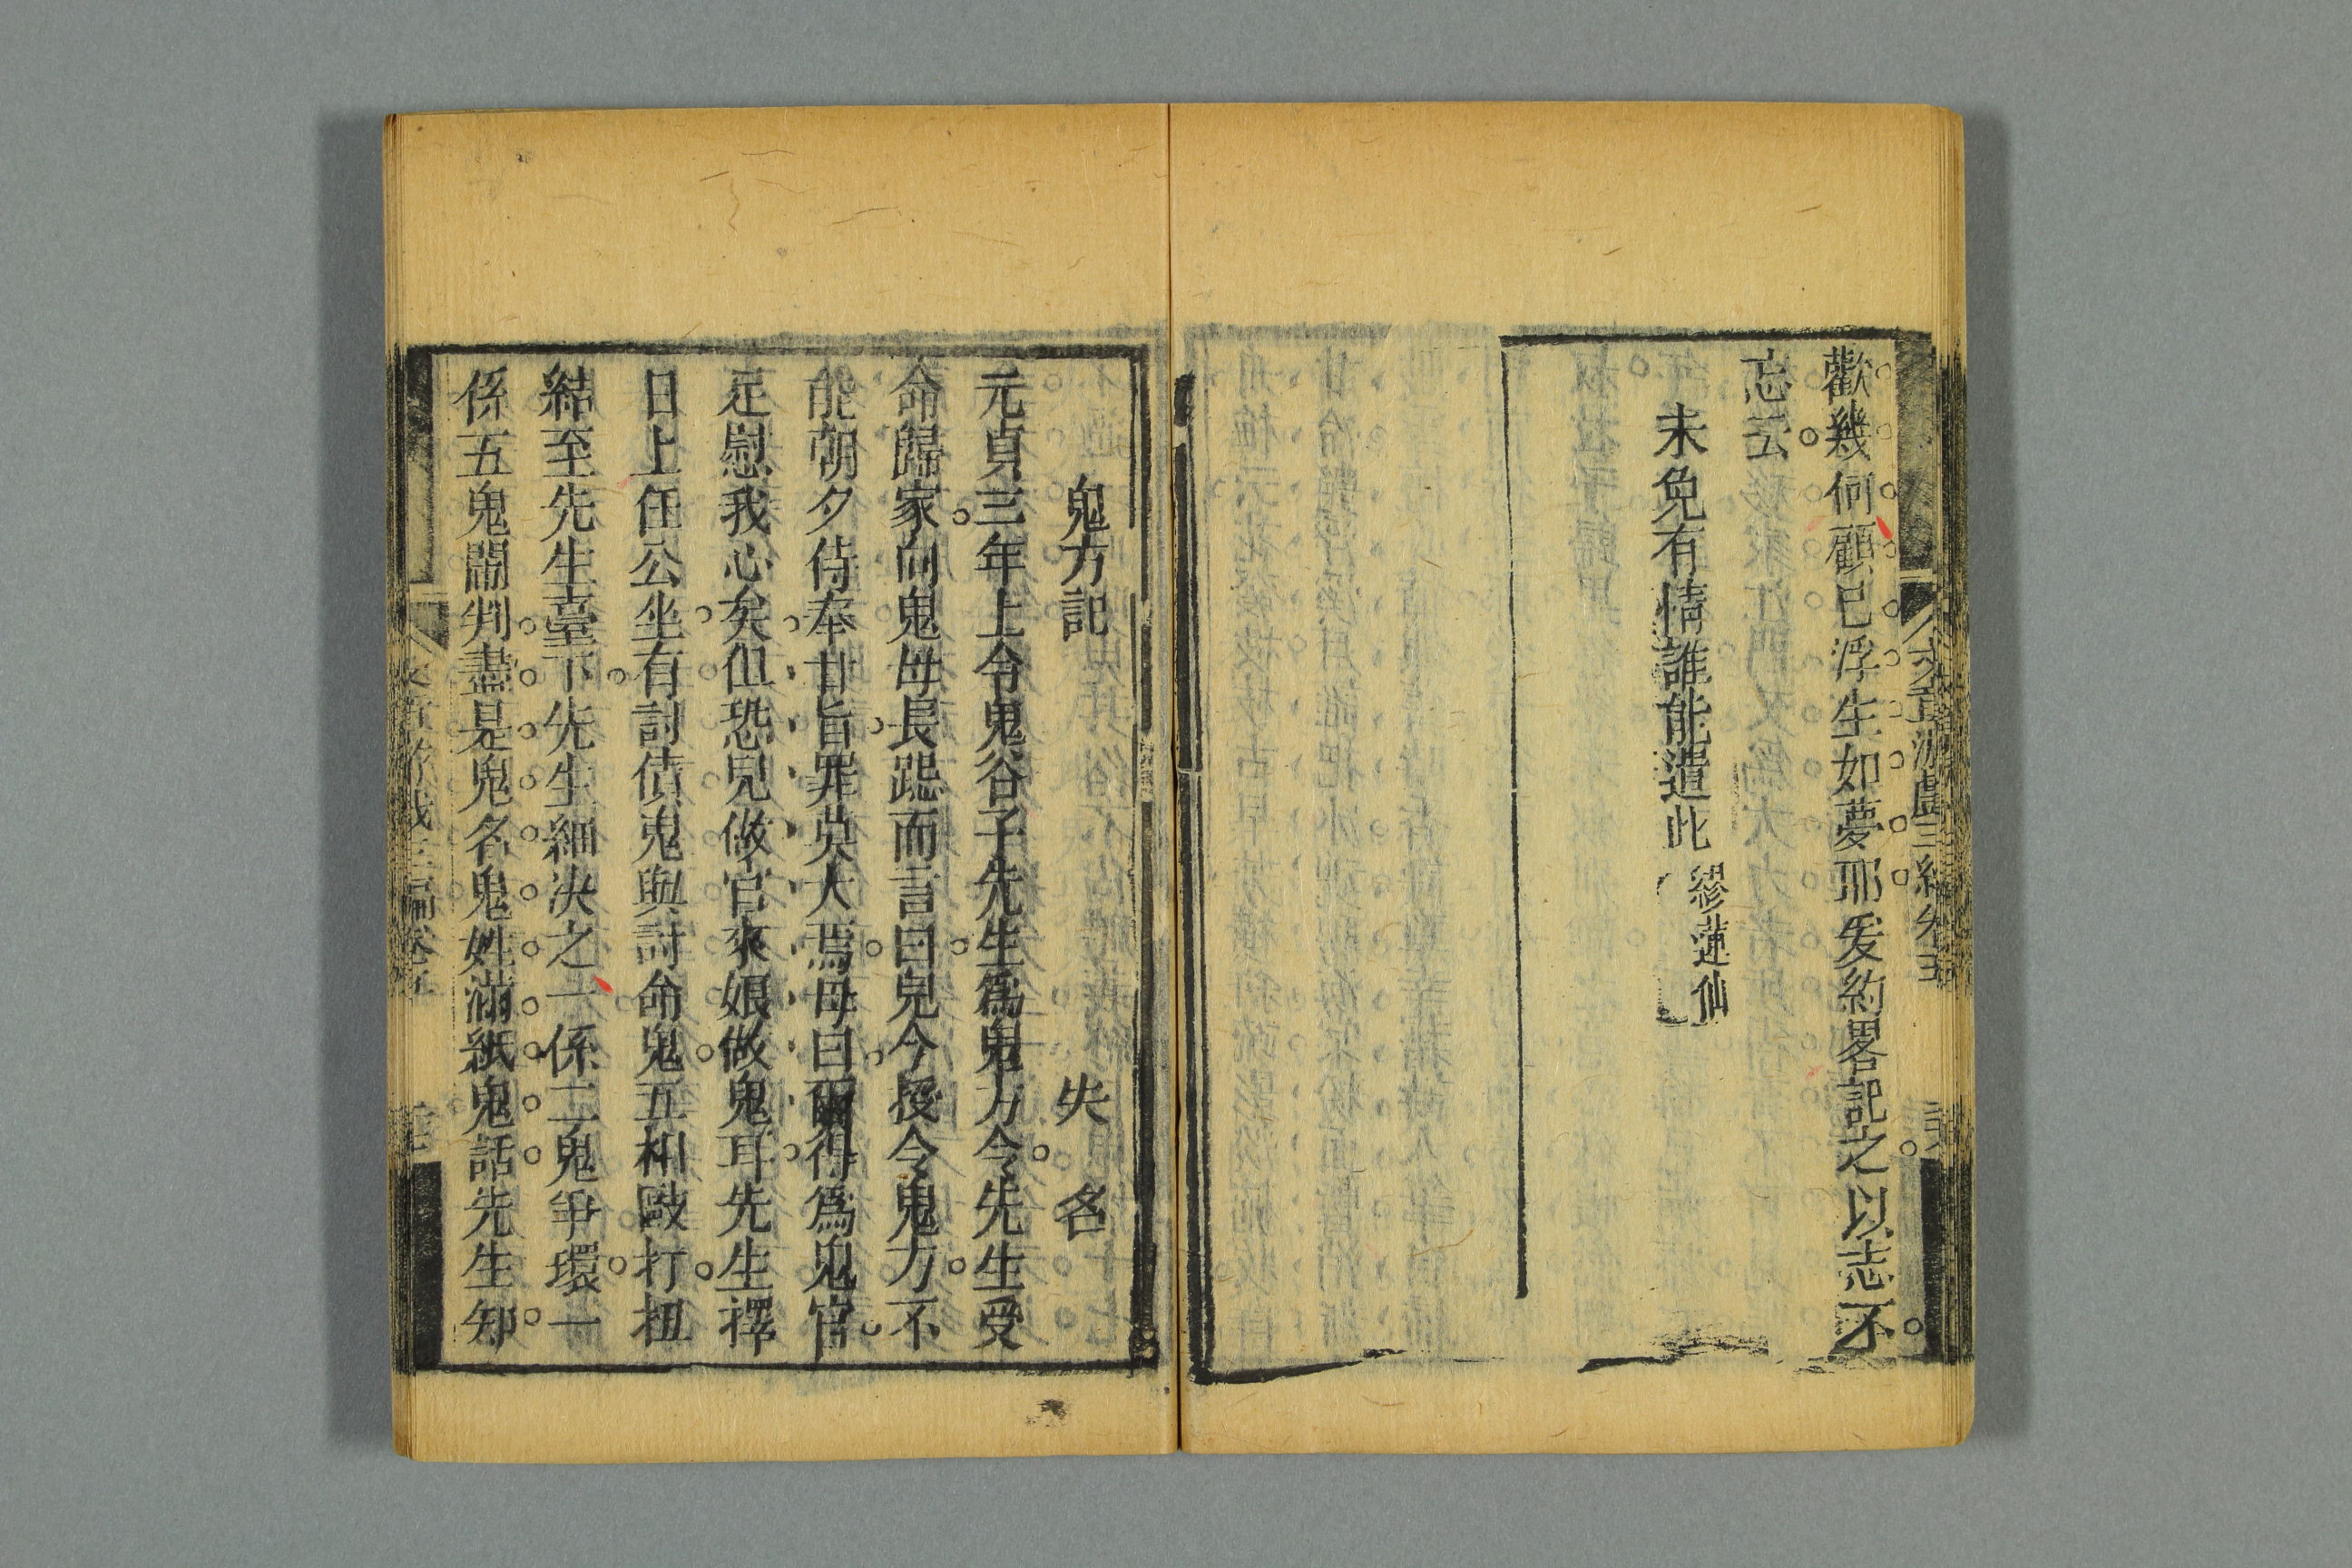 歡幾何顧已浮生如夢耶爰約畧記之以志不
忘云
未免有情誰能遣此
繆蓮仙
鬼方記
失名
元貞三年上令鬼谷子先生爲鬼方令先生受
命歸家向鬼母長跽而言曰兒今授令鬼方不
能朝夕侍奉甘旨罪莫大焉母曰爾得爲鬼官
足慰我心矣但恐兒做官來娘做鬼耳先生擇
日上任公坐有討債鬼與討命鬼互相毆打扭
結至先生臺下先生細決之一係二鬼爭環一
係五鬼鬧判盡是鬼名鬼姓滿紙鬼話先生知